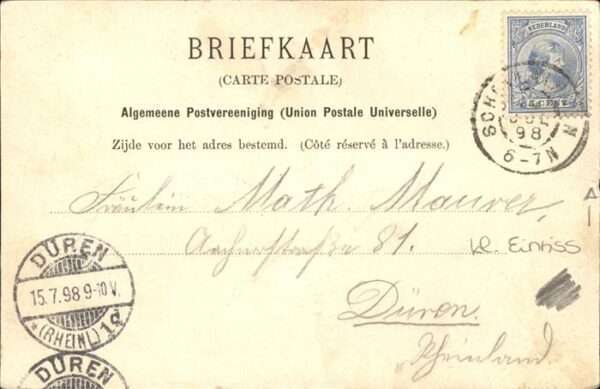 BRIEFKAART
(CARTE POSTALE)
Algemeene Postvereeniging (Union Postale Universelle)
Zijde voor het adres bestemd. (Côté réservé à l'adresse.)
NEDERLAND
5 CENT
JUL
98
6-7N
Fräulein Math. Maurer,
Aachenerstraße 81.
kl. Einriss
Düren.
Rheinland.
DÜREN
15.7.98 9-10 V.
*(RHEINL.) 1d
DÜREN